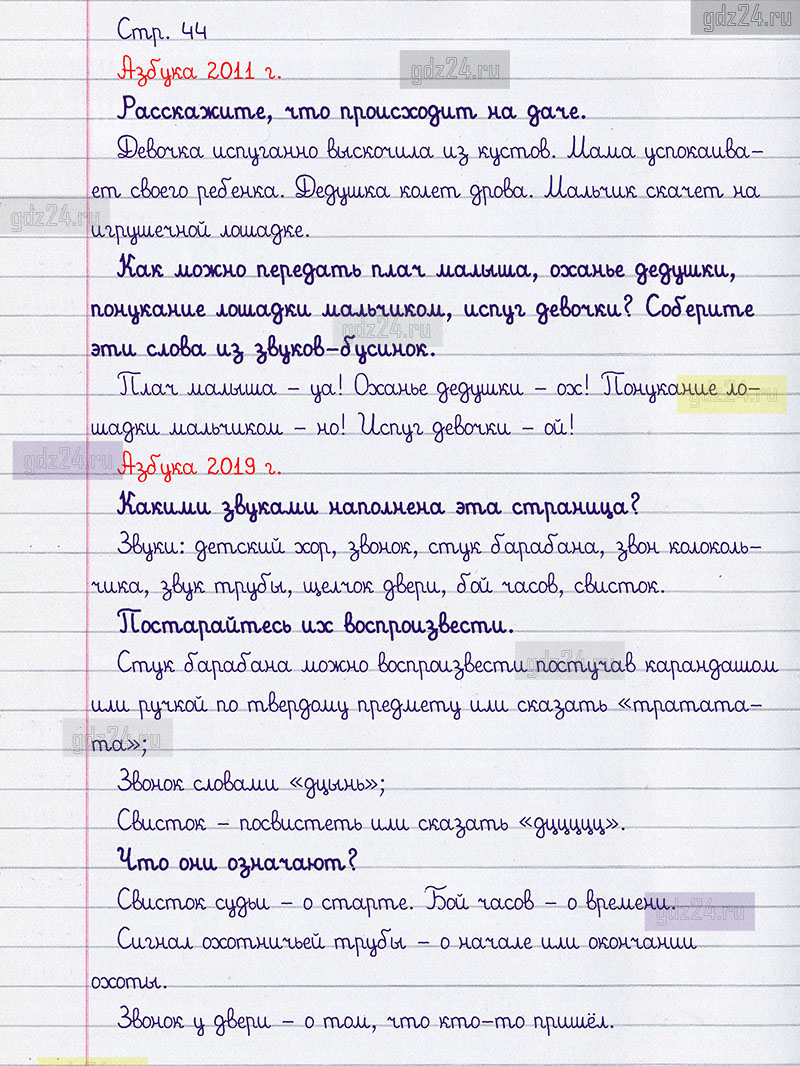 gdz24.ru
Стр. 44
Азбука 2011 г.
gdz24.ru
Расскажите, что происходит на даче.
Девочка испуганно выскочила из кустов. Мама успокаива-
ет своего ребенка. Дедушка колет дрова. Мальчик скачет на
gdz24.ru
игрушечной лошадке.
Как можно передать плач малыша, оханье дедушки,
понукание лошадки мальчиком, испуг девочки? Соберите
gdz24.ru
эти слова из звуков-бусинок.
Плач малыша – уа! Оханье дедушки – ох! Понукание ло-
gdz24.ru
шадки мальчиком – но! Испуг девочки – ой!
gdz24.ru
Азбука 2019 г.
Какими звуками наполнена эта страница?
Звуки: детский хор, звонок, стук барабана, звон колоколь-
чика, звук трубы, щелчок двери, бой часов, свисток.
Постарайтесь их воспроизвести.
Стук барабана можно воспроизвести постучав карандашом
gdz24.ru
или ручкой по твердому предмету или сказать «тратата-
та»;
gdz24.ru
Звонок словами «дцынь»;
Свисток – посвистеть или сказать «дццццц».
Что они означают?
Свисток судьи – о старте. Бой часов – о времени.
gdz24.ru
Сигнал охотничьей трубы – о начале или окончании
охоты.
Звонок у двери – о том, что кто-то пришёл.